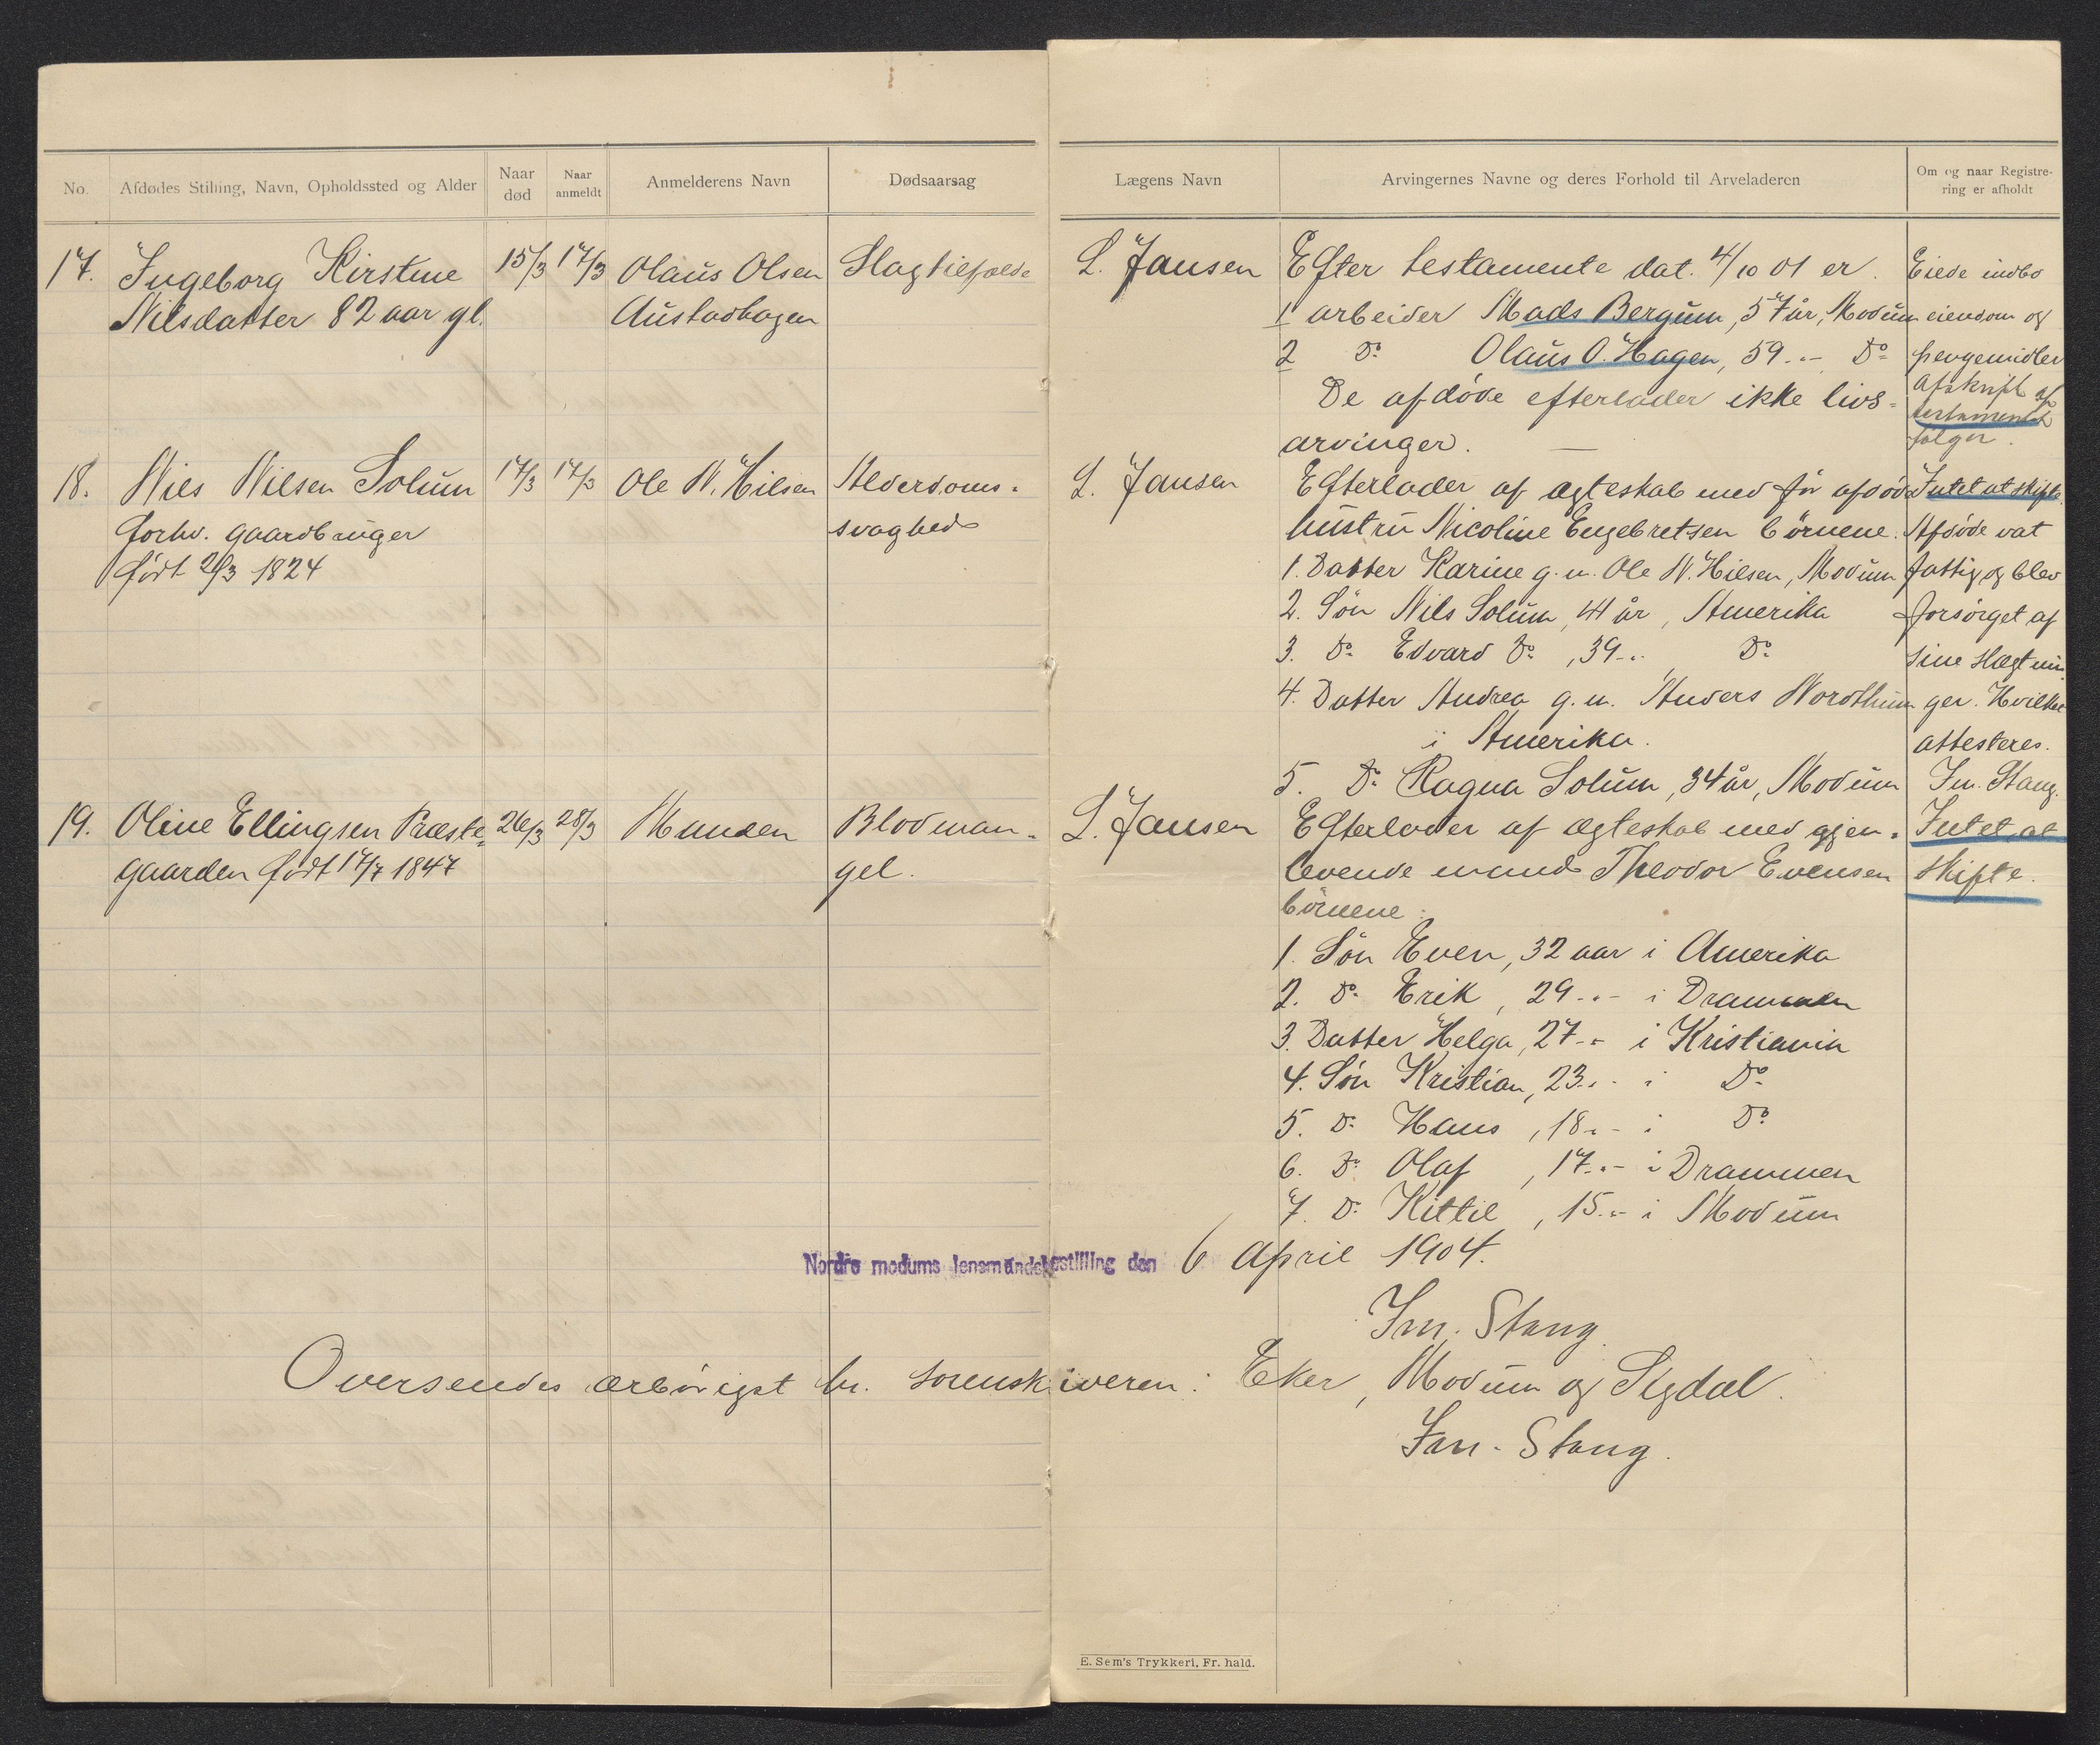 No. Afdødes Stilling, Navn, Opholdssted og Alder Naar død Naar anmeldt Anmelderens Navn Dødsaarsag Lægens Navn Arvingernes Navne og deres Forhold til Arveladeren Om og naar Registrering er afholdt
17. Ingeborg Kirstine 15/3 17/3 Olaus Olsen Slagtilfælde L. Jansen Efter testamente dat. 4/10 01 er. Eiede indbo
Nilsdatter 82 aar gl. Austadhagen 1 arbeider Mads Bergum, 57 år, Modum eiendom og
2 Do Olaus O. Hagen, 59 -"- Do pengemidler
De afdöde efterlader ikke livs- Afskrift af
arvinger. — testamentet
fölger.
18. Niels Nilsen Solum 17/3 17/3 Ole N. Hilsen Alderdoms- L. Jansen Efterlader af ægteskab med för afdöd Intet at skifte
forhv. gaardbruger svaghed hustru Nicoline Engebretsen börnene. Afdöde vat
født 21/3 1824 1. Datter Karine g. m. Ole N. Hilsen, Modum fattig og blev
2. Sön Nils Solum, 41 år, Amerika forsörget af
3. Do Edvard Do, 39 -"-, Do sine slægtnin
4. Datter Andrea g. m. Anders Nordthum ger. Hvilket
i Amerika. attesteres.
5. Do Ragna Solum, 34 år, Modum Im. Stang.
19. Oline Ellingsen Præste- 26/3 28/3 Manden Blodman- L. Jansen Efterlader af ægteskab med gjen- Intet at
gaarden født 17/7 1847 gel. levende mand Theodor Evensen skifte.
börnene:
1. Sön Even, 32 aar i Amerika
2. Do Erik, 29 -"- i Drammen
3. Datter Helga, 27 -"- i Kristiania
4. Sön Kristian, 23 -"- i Do
5. Do Hans, 18 -"- i Do
6. Do Olaf, 17 -"- i Drammen
7. Do Kittil, 15 -"- i Modum
Nordre modums lensmandsbestilling den 6 April 1904.
Im. Stang.
Oversendes ærbörigst hr. sorenskriveren i Eker, Modum og Sigdal.
Im. Stang.
E. Sem's Trykkeri, Fr. hald.